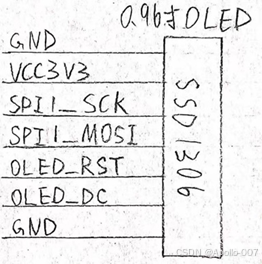 0.96寸OLED
GND
VCC3V3
SPI1_SCK
SPI1_MOSI
OLED_RST
OLED_DC
GND
SSD1306
CSDN @Apollo-007